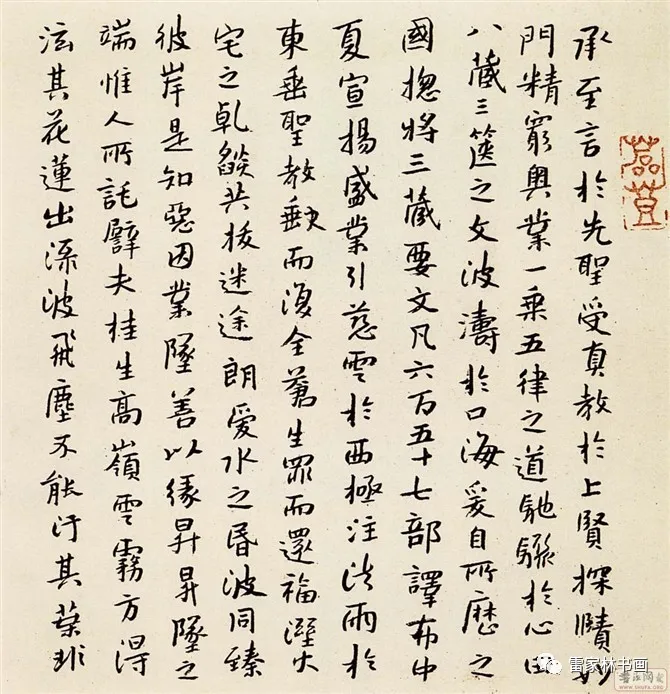 承至言於先聖受真教於上賢探賾妙
門精窮奧業一乘五律之道馳驟於心田
八藏三篋之文波濤於口海爰自所歷之
國揔將三藏要文凡六百五十七部譯布中
夏宣揚盛業引慈雲於西極注法雨於
東垂聖教缺而復全蒼生罪而還福溼火
宅之乹燄共拔迷途朗愛水之昏波同臻
彼岸是知惡因業墜善以緣昇昇墜之
端惟人所託譬夫桂生高嶺雲霧方得
泫其花蓮出淥波飛塵不能汙其葉非
雷家林书画